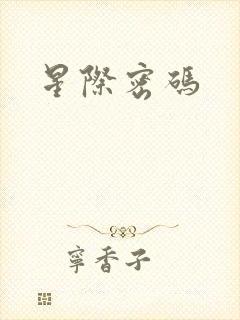 星際密碼
寧香子